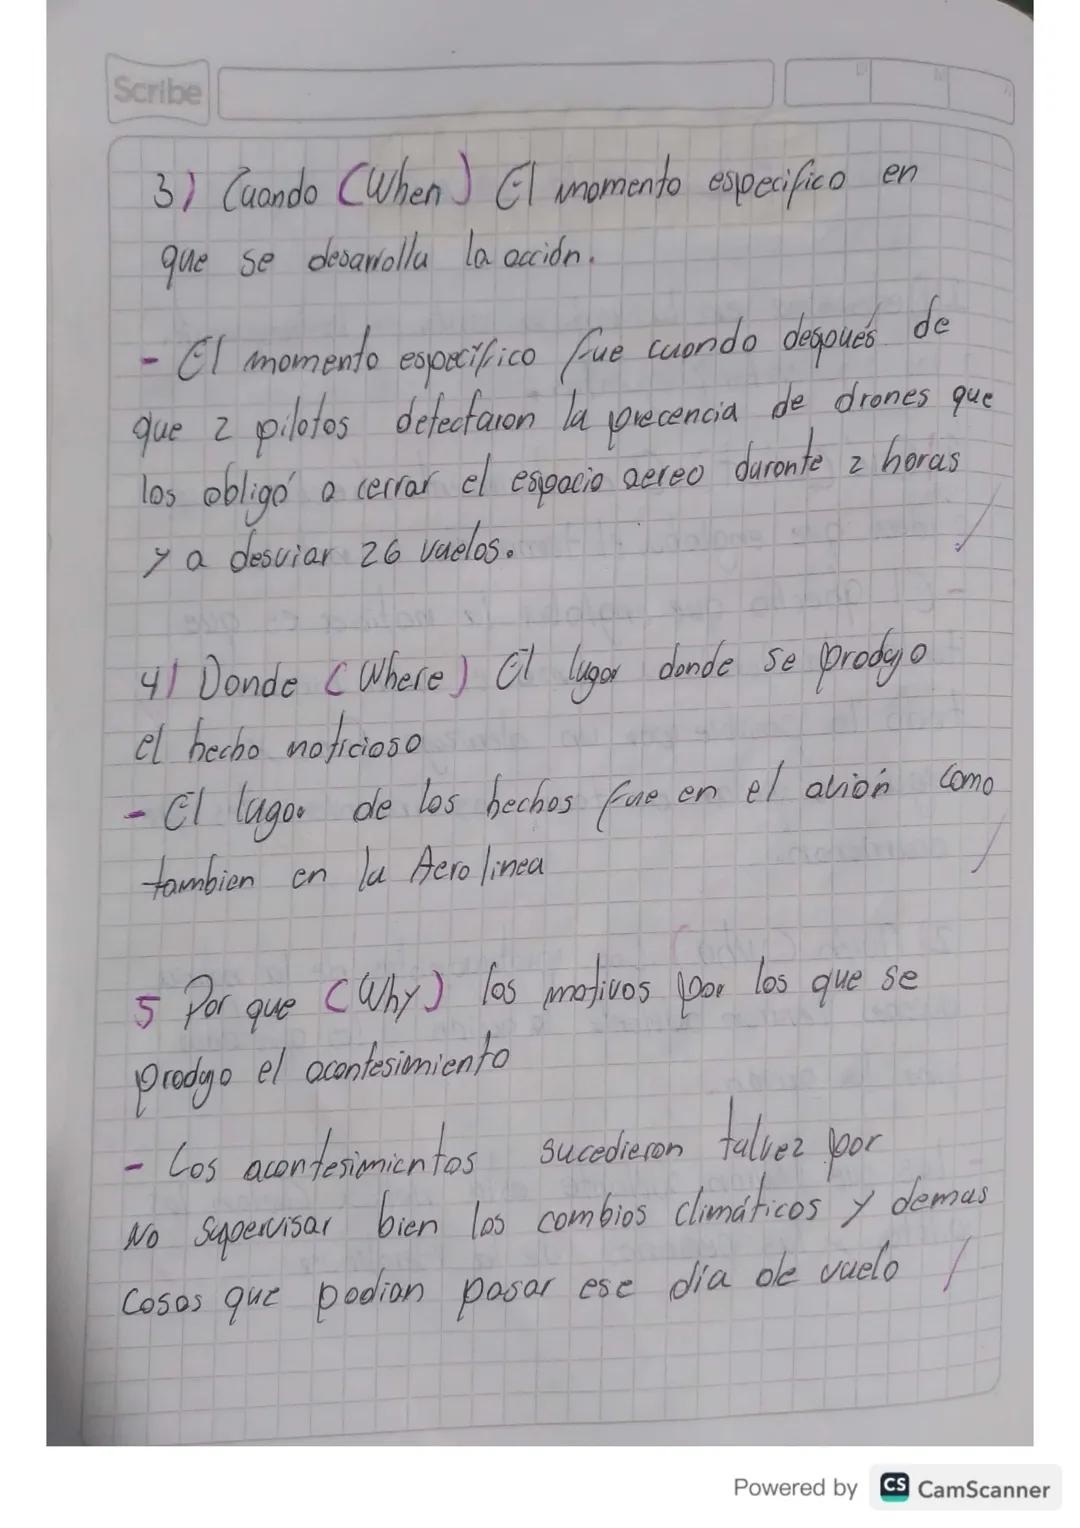 Scribe
3) Cuando (When) El momento especifico en
que se desarrolla la acción.
- El momento especifico fue cuando después de
que 2 pilotos detectaron la precencia de drones que
los obligó a cerrar el espacio aereo durante 2 horas
y a desviar 26 vuelos.
4) Donde (Where) El lugar donde se produjo
el hecho noticioso
- El lugar de los hechos fue en el avión como
tambien en la Aerolinea
5 Por que (Why) los motivos por los que se
produjo el acontesimiento
- Los acontesimientos sucedieron talvez por
No supervisar bien los cambios climáticos y demas
cosas que podian pasar ese día de vuelo
Powered by CS CamScanner